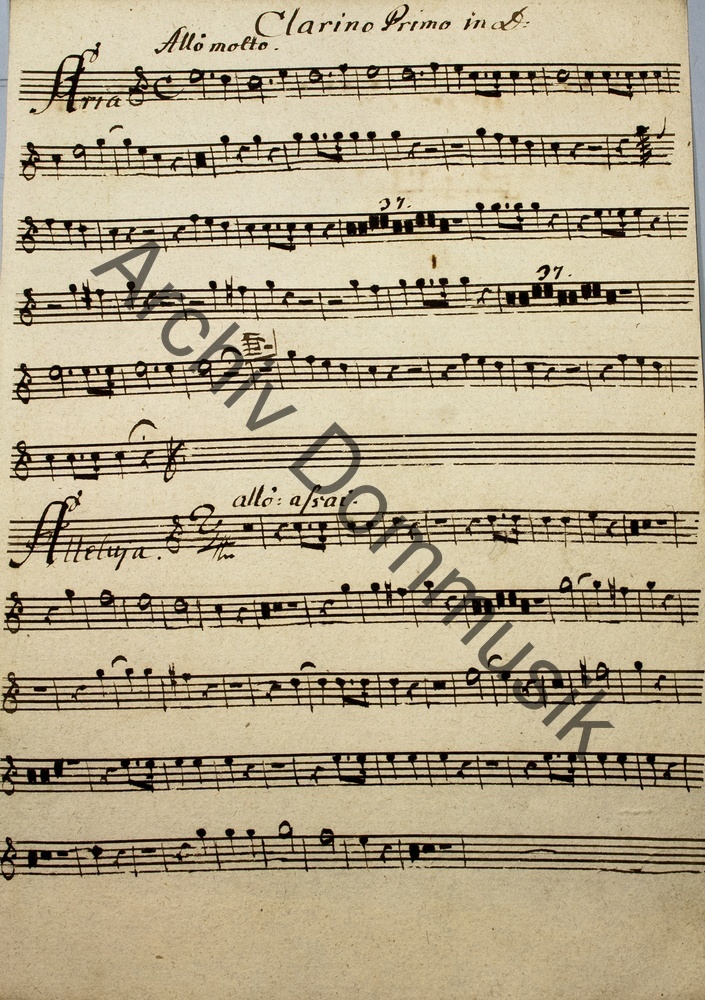 Clarino Primo in D:
Allo molto.
Aria
37.
37.
allo: assai.
Alleluja.
Archiv Dommusik